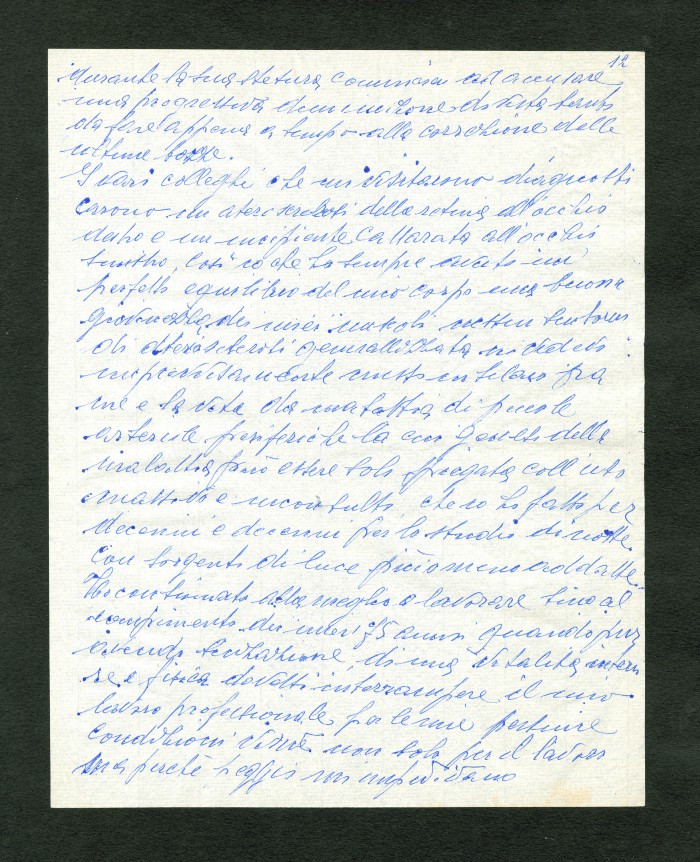 12
durante la sua stesura cominciai ad accusare
una progressiva diminuzione di vista tanto
da fare appena a tempo alla correzione delle
ultime bozze.
I vari colleghi che mi visitarono diagnosti
carono un aterosclerosi della retina all'occhio
destro e un incipiente cattarata all'occhio
sinistro. Così io che ho sempre avuto un
perfetto equilibrio del mio corpo una buona
giovinezza dei miei muscoli nessun
di aterosclerosi generalizzata mi vidi
improvvisamente fra
me e la vita da malattia di piccole
arterie periferiche la cui genesi della
malattia può essere solo spiegata coll'uso
e inconsulto che io ho fatto per
decenni e decenni per lo studio di notte
con sorgenti di luce più o meno adatte.
Ho continuato alla meglio a lavorare fino al
compimento dei miei 75 anni quando pur
avendo sensazione di una vitalità
e fisica dovetti interrompere il mio
lavoro professionale per le mie
condizioni visive non solo per il lavoro
ma perché mi impedivano